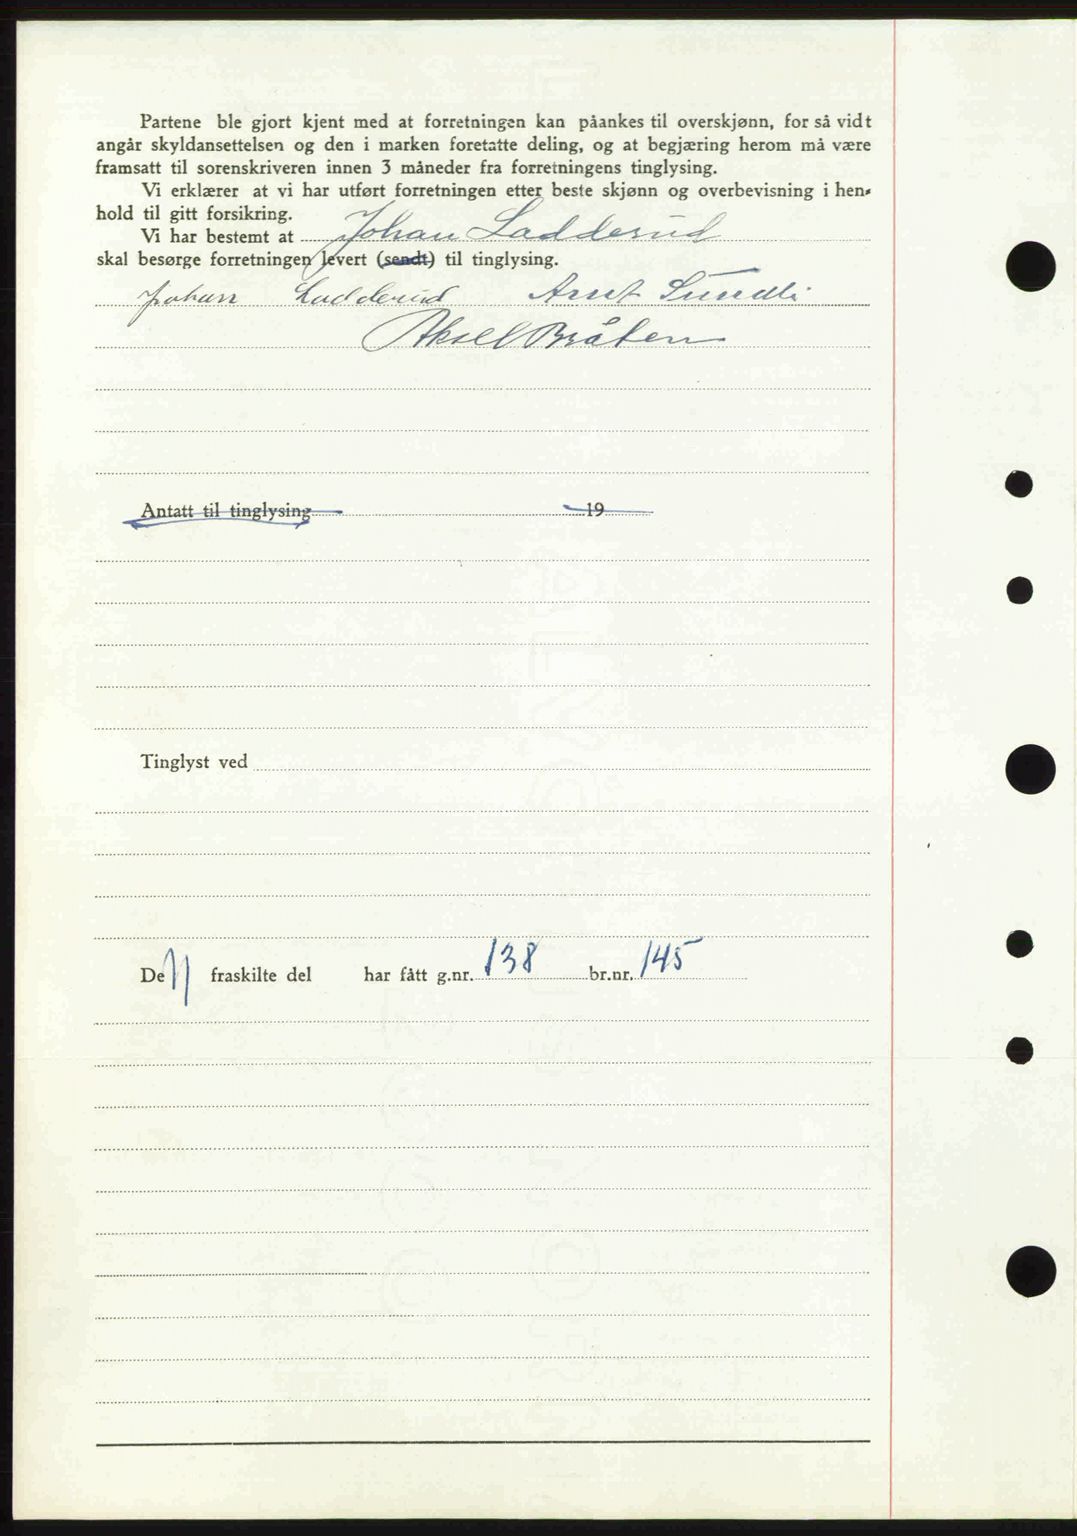 Partene ble gjort kjent med at forretningen kan påankes til overskjønn, for så vidt
angår skyldansettelsen og den i marken foretatte deling, og at begjæring herom må være
framsatt til sorenskriveren innen 3 måneder fra forretningens tinglysing.
Vi erklærer at vi har utført forretningen etter beste skjønn og overbevisning i hen-
hold til gitt forsikring.
Vi har bestemt at Johan Ladderud
skal besørge forretningen levert (sendt) til tinglysing.
Johan Ladderud Arnt Sundli
Aksel Bråten
Antatt til tinglysing 19
Tinglyst ved
Den fraskilte del har fått g.nr. 138 br.nr. 145